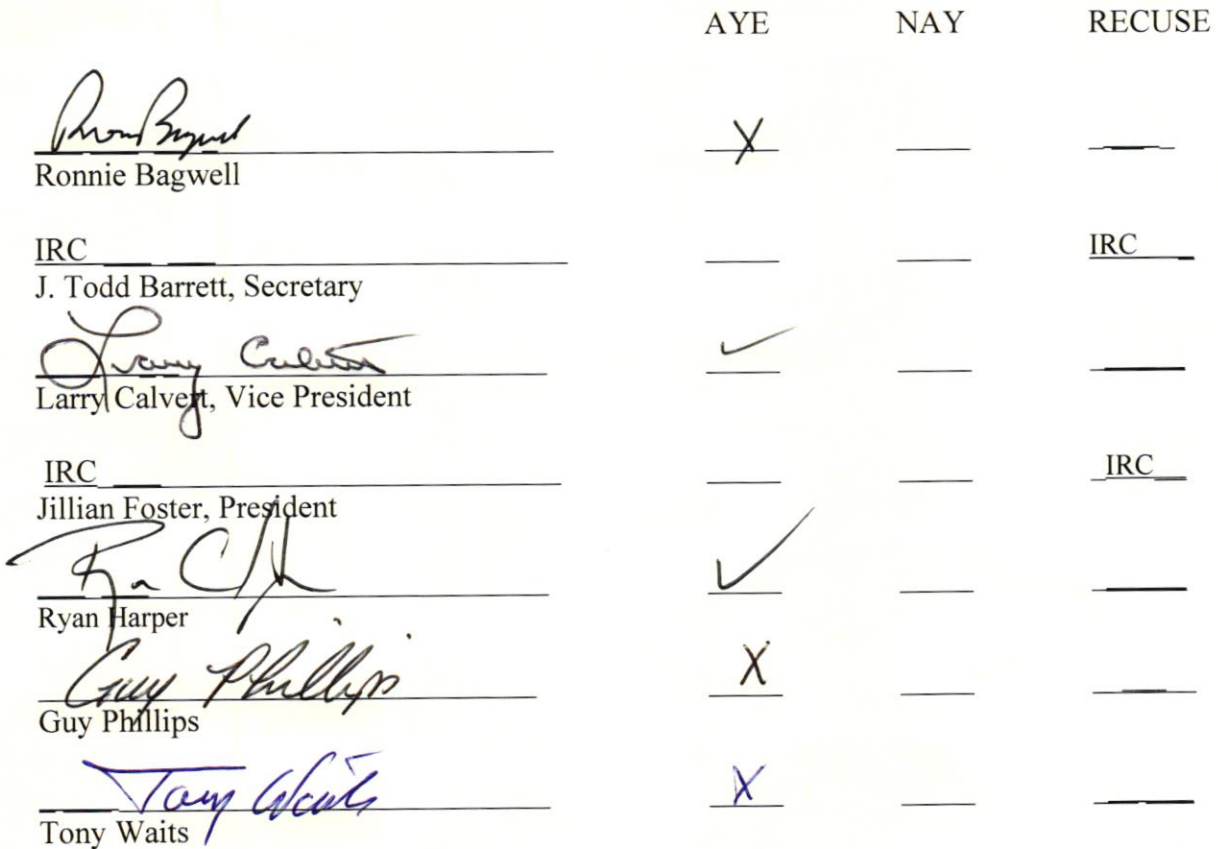 AYE NAY RECUSE
Ronnie Bagwell X
Ronnie Bagwell
IRC IRC
J. Todd Barrett, Secretary
Larry Calvert ✓
Larry Calvert, Vice President
IRC IRC
Jillian Foster, President
✓
Ryan Harper
Guy Phillips X
Guy Phillips
Tony Waits X
Tony Waits